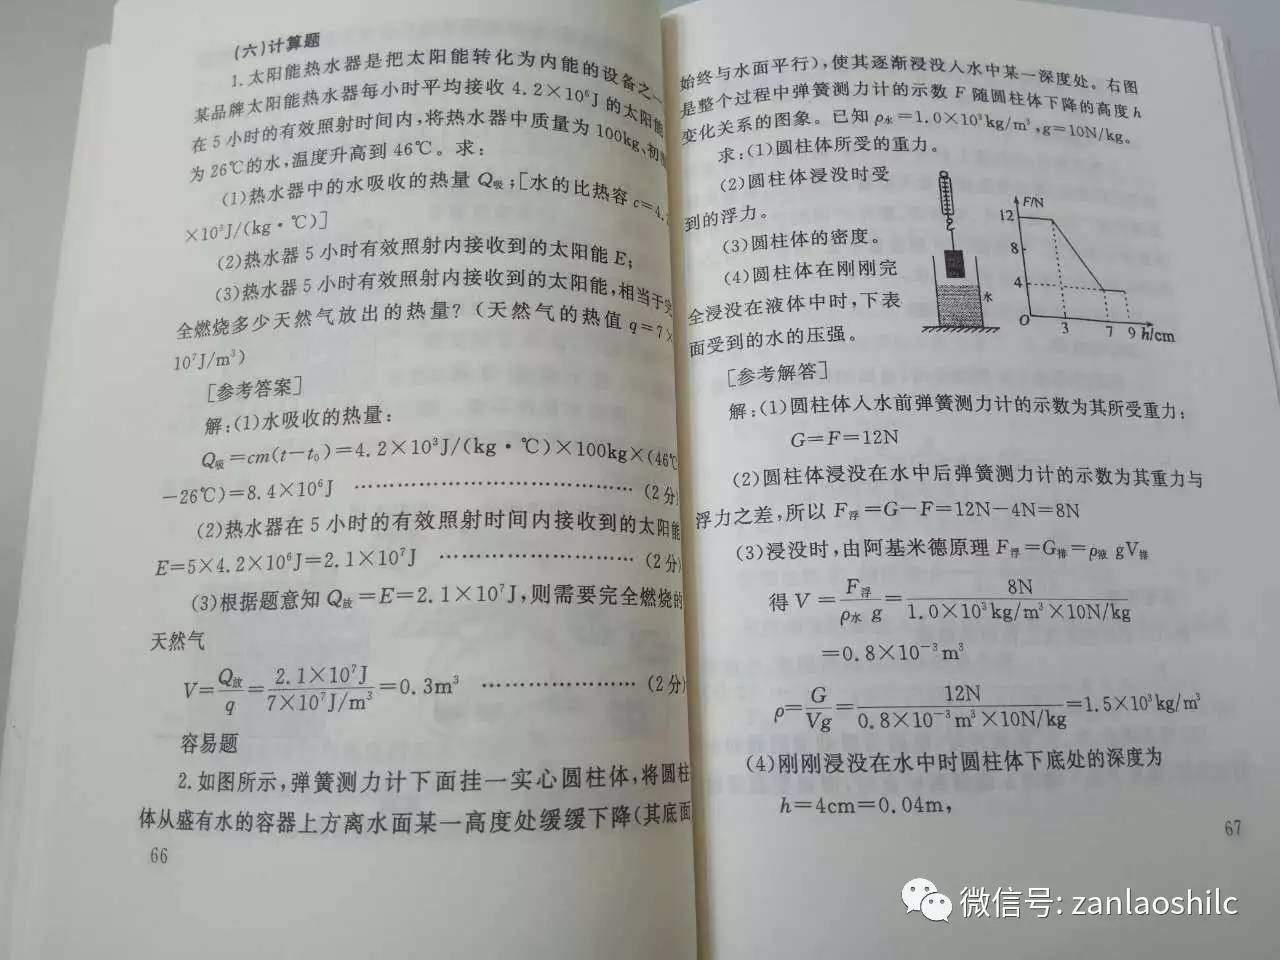 (六)计算题
1.太阳能热水器是把太阳能转化为内能的设备之一
某品牌太阳能热水器每小时平均接收 4.2×10⁶J 的太阳能
在 5 小时的有效照射时间内,将热水器中质量为 100kg、初
为 26℃的水,温度升高到 46℃。求:
(1)热水器中的水吸收的热量 Q吸;[水的比热容 c=4.
×10³J/(kg·℃)]
(2)热水器 5 小时有效照射内接收到的太阳能 E;
(3)热水器 5 小时有效照射内接收到的太阳能,相当于
全燃烧多少天然气放出的热量?(天然气的热值 q=7×
10⁷J/m³)
[参考答案]
解:(1)水吸收的热量:
Q吸=cm(t-t₀)=4.2×10³J/(kg·℃)×100kg×(46℃
-26℃)=8.4×10⁶J ………………………………(2 分)
(2)热水器在 5 小时的有效照射时间内接收到的太阳能
E=5×4.2×10⁶J=2.1×10⁷J ……………………(2 分)
(3)根据题意知 Q放=E=2.1×10⁷J,则需要完全燃烧的
天然气
V=Q放/q=2.1×10⁷J/7×10⁷J/m³=0.3m³ …………………(2 分)
容易题
2.如图所示,弹簧测力计下面挂一实心圆柱体,将圆柱
体从盛有水的容器上方离水面某一高度处缓缓下降(其底面
66
始终与水面平行),使其逐渐浸没入水中某一深度处。右图
是整个过程中弹簧测力计的示数 F 随圆柱体下降的高度 h
变化关系的图象。已知 ρ水=1.0×10³kg/m³,g=10N/kg。
求:(1)圆柱体所受的重力。
(2)圆柱体浸没时受
到的浮力。
(3)圆柱体的密度。
(4)圆柱体在刚刚完
全浸没在液体中时,下表
面受到的水的压强。
水
F/N
12
8
4
O
3 7 9 h/cm
[参考解答]
解:(1)圆柱体入水前弹簧测力计的示数为其所受重力;
G=F=12N
(2)圆柱体浸没在水中后弹簧测力计的示数为其重力与
浮力之差,所以 F浮=G-F=12N-4N=8N
(3)浸没时,由阿基米德原理 F浮=G排=ρ液 gV排
得 V=F浮/ρ水 g=8N/1.0×10³kg/m³×10N/kg
=0.8×10⁻³m³
ρ=G/Vg=12N/0.8×10⁻³m³×10N/kg=1.5×10³kg/m³
(4)刚刚浸没在水中时圆柱体下底处的深度为
h=4cm=0.04m,
67
微信号: zanlaoshilc